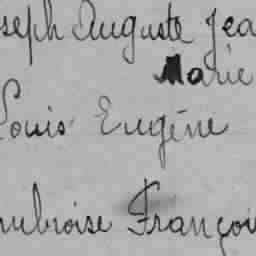 seph Auguste Jea
Marie
Louis Eugène
mbroise Françoi